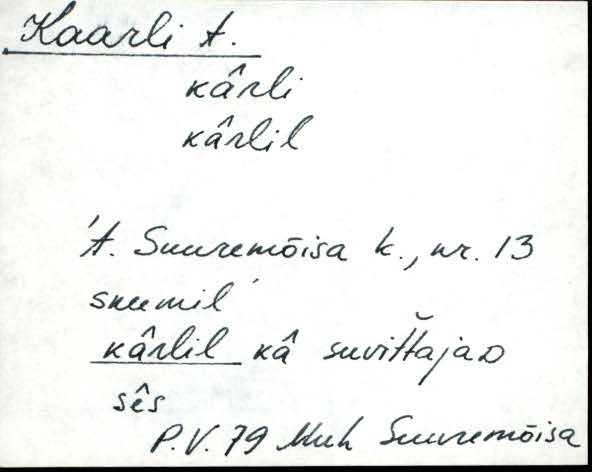 Kaarli A.
kârli
kârlil
'A. Suuremõisa k., nr. 13
snumil'
kârlil kâ suvittajaᴅ
sês
P.V. 79 Muh Suuremõisa